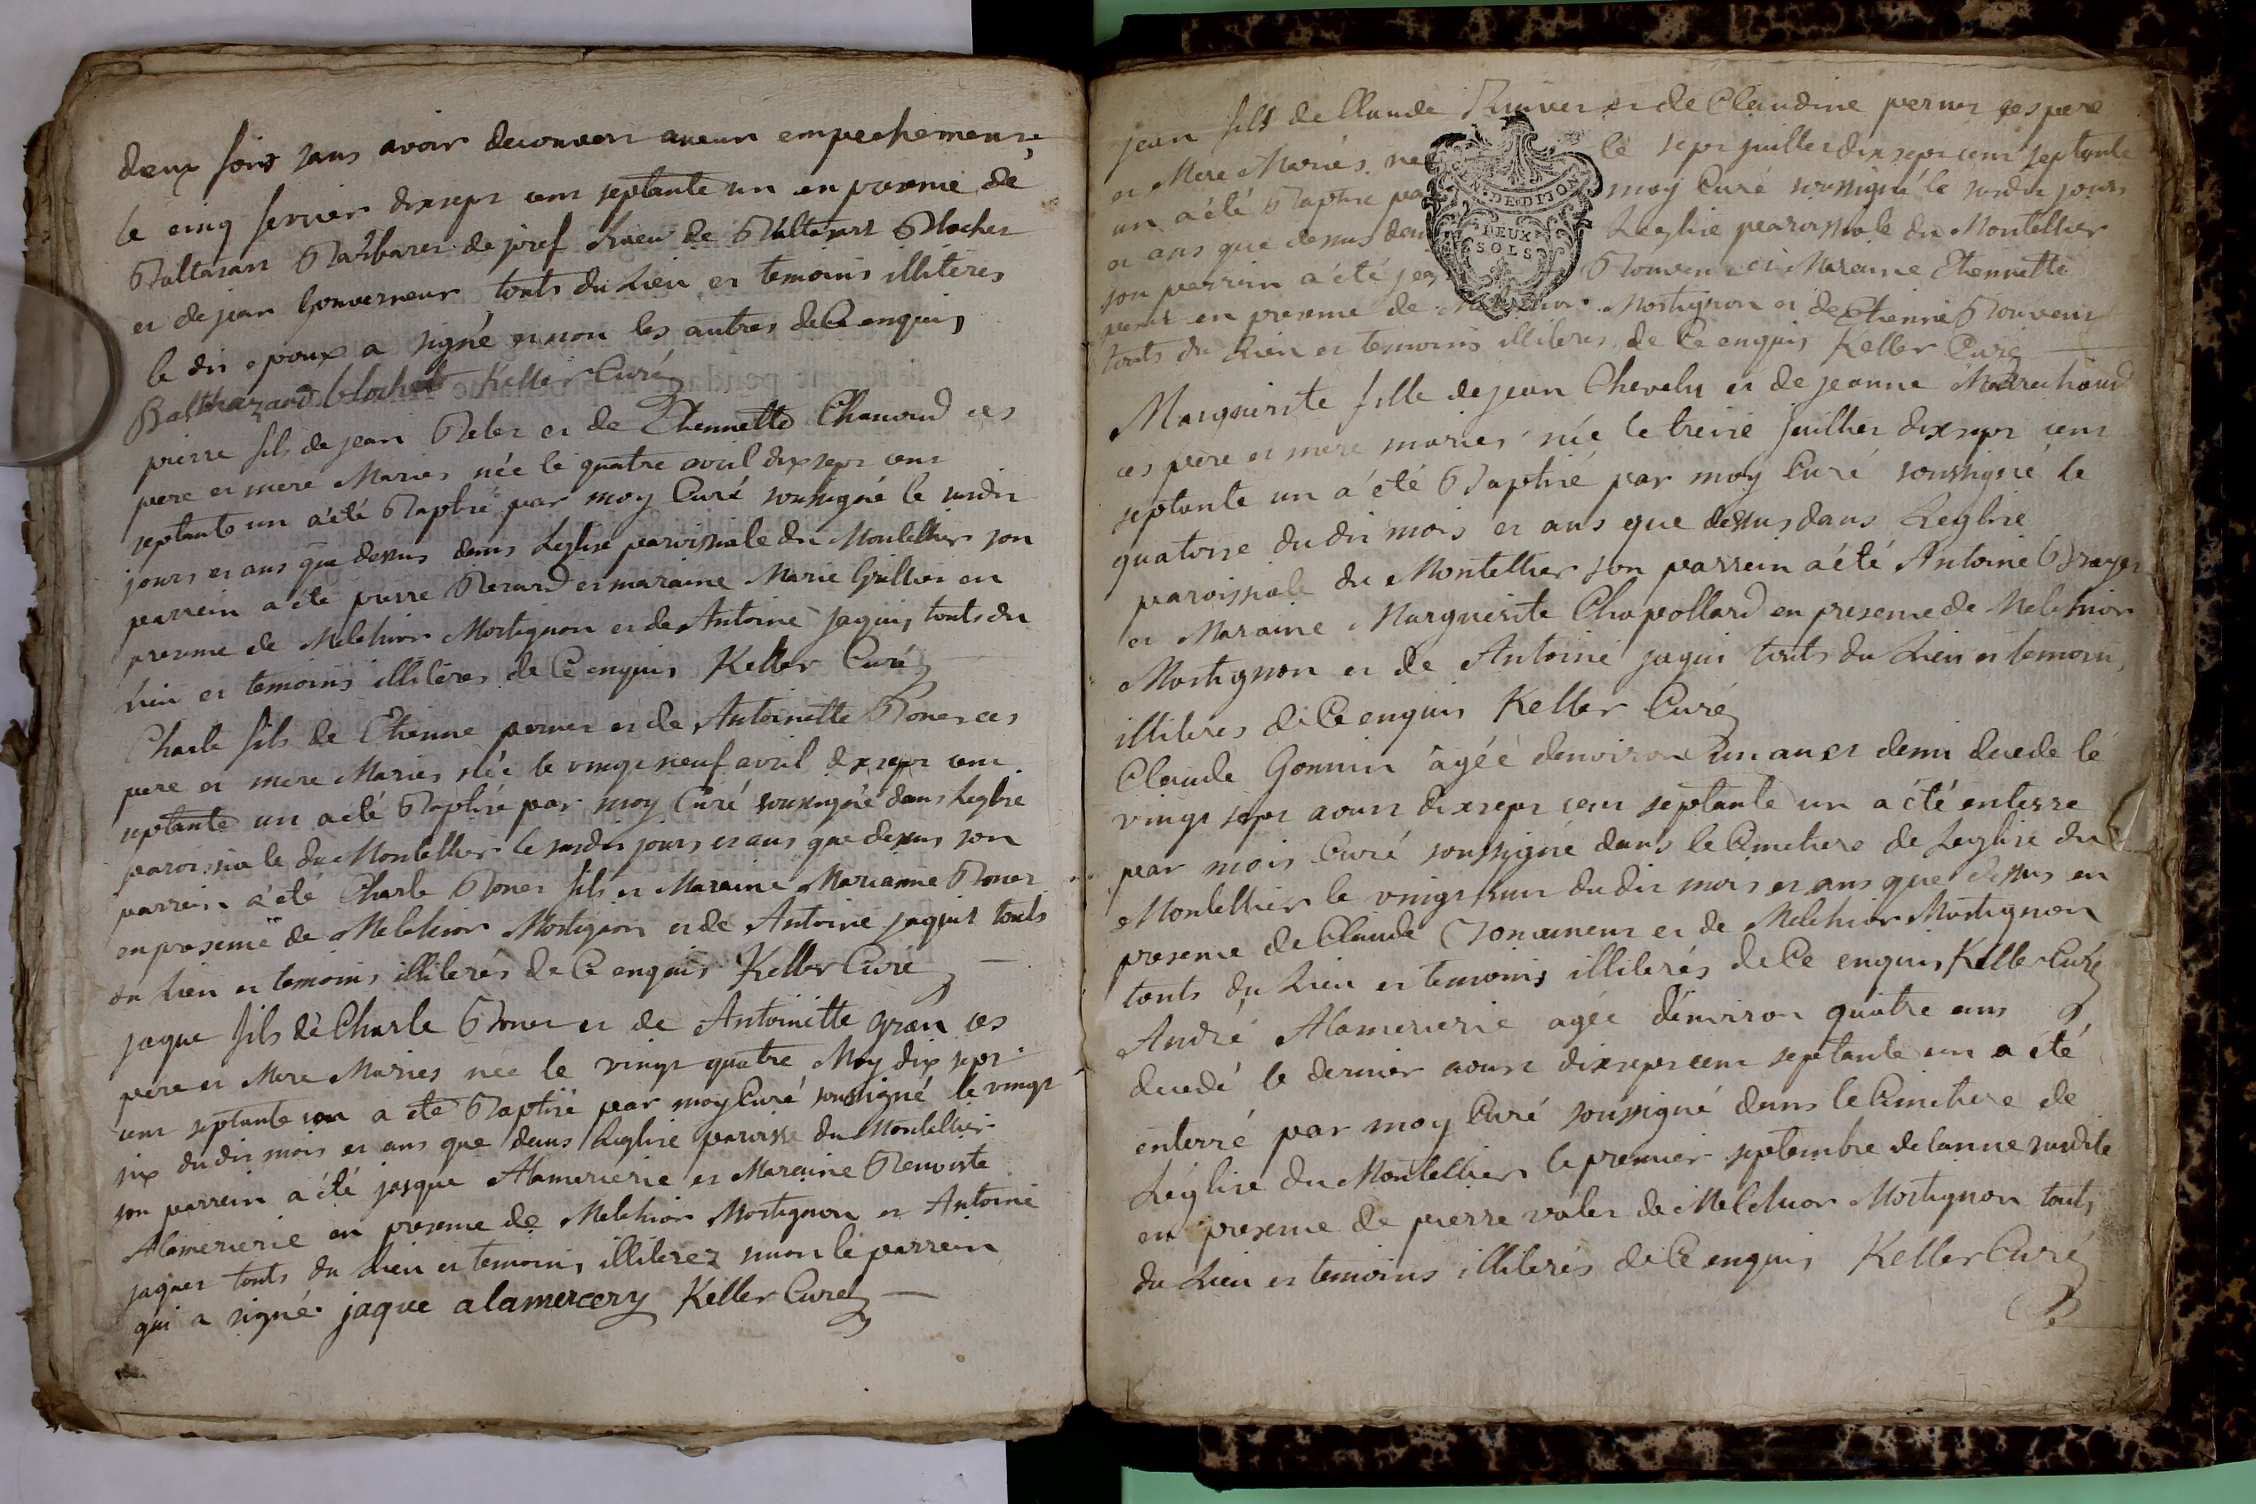 deux fois sans avoir decouvert aucun empechement
le cinq ferrier dix sept cent septante un en presence de
Baltasart Barbaret de josef de Baltasart Blochet
et de jean Gouverneur touts du Lieu et temoins illiteres
le dit epoux a signé et non les autres de Ce enquis
Balthazard blochet Keller Curé
pierre fils de jean Belet et de Etiennette Chanoud ces
pere et mere Mariés née le quatre avril dix sept cent
septante un a été Baptisé par moy Curé soussigné le susdit
jours et ans que dessus dans Leglise paroissiale du Montellier son
parrein a été pierre Berard et maraine Marie Grillier en
presence de Melchior Mortignon et de Antoine jaquis touts du
Lieu et temoins illiteres de Ce enquis Keller Curé
Charle fils de Etienne pernet et de Antoinette Bonet ces
pere et mere Mariés née le vingt neuf avril dix sept cent
septante un a été Baptisé par moy Curé soussigné dans Leglise
paroissiale du Montellier le susdit jours et ans que dessus son
parrein a été Charle Bonet fils et Maraine Marianne Bonet
en presence de Melchior Mortignon et de Antoine jaquit touts
du Lieu et temoins illiterés de Ce enquis Keller Curé
jaque fils de Charle Bonet et de Antoinette gran ces
pere et Mere Mariés née le vingt quatre May dix sept
cent septante un a été Baptisé par moy Curé soussigné le vingt
six du dit mois et ans que dans Leglise paroisse du Montellier
son parrein a été jasque Alamercerie et Maraine Benoiste
Alamercerie en presence de Melchior Mortignon et Antoine
jaquet touts du Lieu et temoins illiterez sinon le parrein
qui a signé jaque alamercery Keller Curé
jean fils de Claude et de Claudine pernet ces pere
et Mere Mariés né le sept juillet dix sept cent septante
un a été Baptisé par moy Curé soussigné le susdit jours
et ans que dessus dans Leglise paroissiale du Montellier
son parrein a été jean Bouvent et Maraine Etiennette
pernet en presence de Melchior Mortignon et de Etienne Bouvent
touts du Lieu et temoins illiteres de Ce enquis Keller Curé
Marguerite fille de jean Chevelu et de jeanne Marechand
ces pere et mere mariés née le treise juillet dix sept cent
septante un a été Baptisé par moy Curé soussigné le
quatorse du dit mois et ans que dessus dans Leglise
paroissiale du Montellier son parrein a été Antoine Brayer
et Maraine Marguerite Chapollard en presence de Melchior
Mortignon et de Antoine jaqui touts du Lieu et temoins
illiteres de Ce enquis Keller Curé
Claude Gonnin âgée denviron un an et demi decede le
vingt sept aoust dix sept cent septante un a été enterre
par mois Curé soussigné dans le Cimetiere de Leglise du
Montellier le vingt huit du dit mois et ans que dessus en
presence de Claude et de Melchior Mortignon
touts du Lieu et temoins illiterés de Ce enquis Keller Curé
André Alamercerie agée d'environ quatre ans
decedé le dernier aoust dix sept cent septante un a été
enterré par moy Curé soussigné dans le Cimetiere de
Léglise du Montellier le premier septembre de lanne susdite
en presence de pierre valet de Melchior Mortignon touts
du Lieu et temoins illiterés de Ce enquis Keller Curé
GEN. DE DIJON
DEUX
SOLS